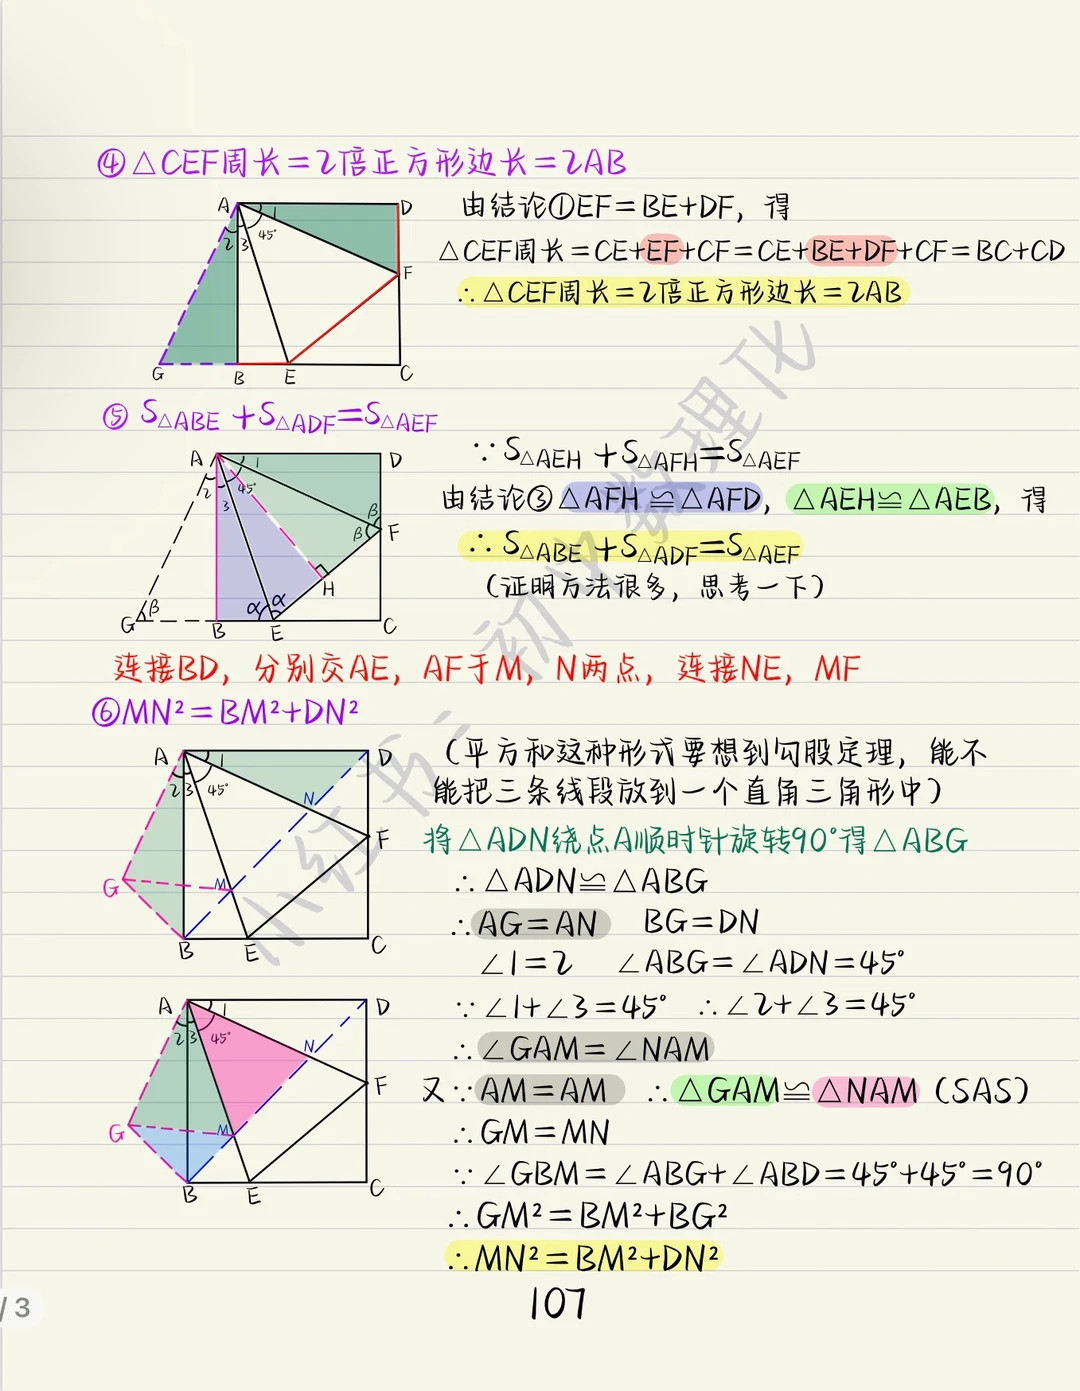 ④△CEF周长=2倍正方形边长=2AB
由结论①EF=BE+DF，得
△CEF周长=CE+EF+CF=CE+BE+DF+CF=BC+CD
∴△CEF周长=2倍正方形边长=2AB
A D 1 2 3 45° F G B E C
⑤ S△ABE +S△ADF=S△AEF
∵S△AEH +S△AFH=S△AEF
由结论③△AFH≌△AFD，△AEH≌△AEB，得
∴S△ABE +S△ADF=S△AEF
（证明方法很多，思考一下）
A D 1 2 3 45° β β F H G β α α B E C
连接BD，分别交AE，AF于M，N两点，连接NE，MF
⑥MN²=BM²+DN²
（平方和这种形式要想到勾股定理，能不
能把三条线段放到一个直角三角形中）
将△ADN绕点A顺时针旋转90°得△ABG
∴△ADN≌△ABG
∴AG=AN BG=DN
∠1=2 ∠ABG=∠ADN=45°
∵∠1+∠3=45° ∴∠2+∠3=45°
∴∠GAM=∠NAM
又∵AM=AM ∴△GAM≌△NAM（SAS）
∴GM=MN
∵∠GBM=∠ABG+∠ABD=45°+45°=90°
∴GM²=BM²+BG²
∴MN²=BM²+DN²
A D 1 2 3 45° N F G M B E C
A D 1 2 3 45° N F G M B E C
小红书：初中数理化
107
/ 3